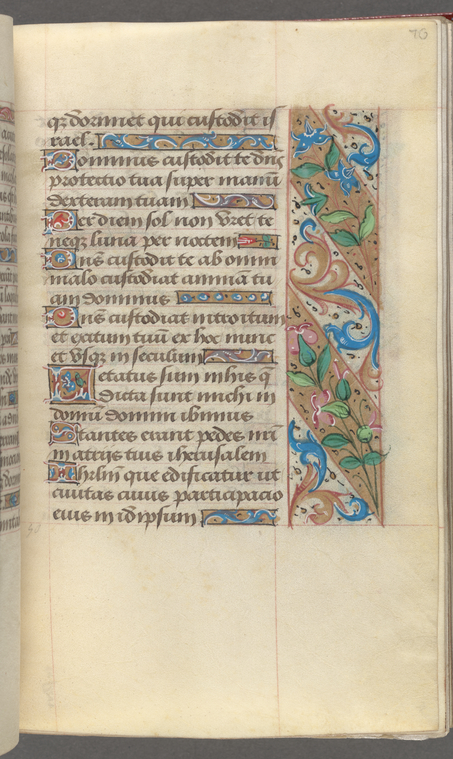 76
qz dormiet qui custodit is
rael.
Dominus custodit te dns
protectio tua super manu
dexteram tuam
Per diem sol non vret te
neqz luna per noctem
Dns custodit te ab omni
malo custodiat animā tu
am dominus
Dns custodiat introitum
et exitum tuū ex hoc nunc
et vsqz in seculum
Letatus sum in his q
dicta sunt michi in
domū domini ibimus
Stantes erant pedes nrī
in atrijs tuis iherusalem
Ihrlm̄ que edificatur vt
ciuitas cuius participacio
eius in idipsum